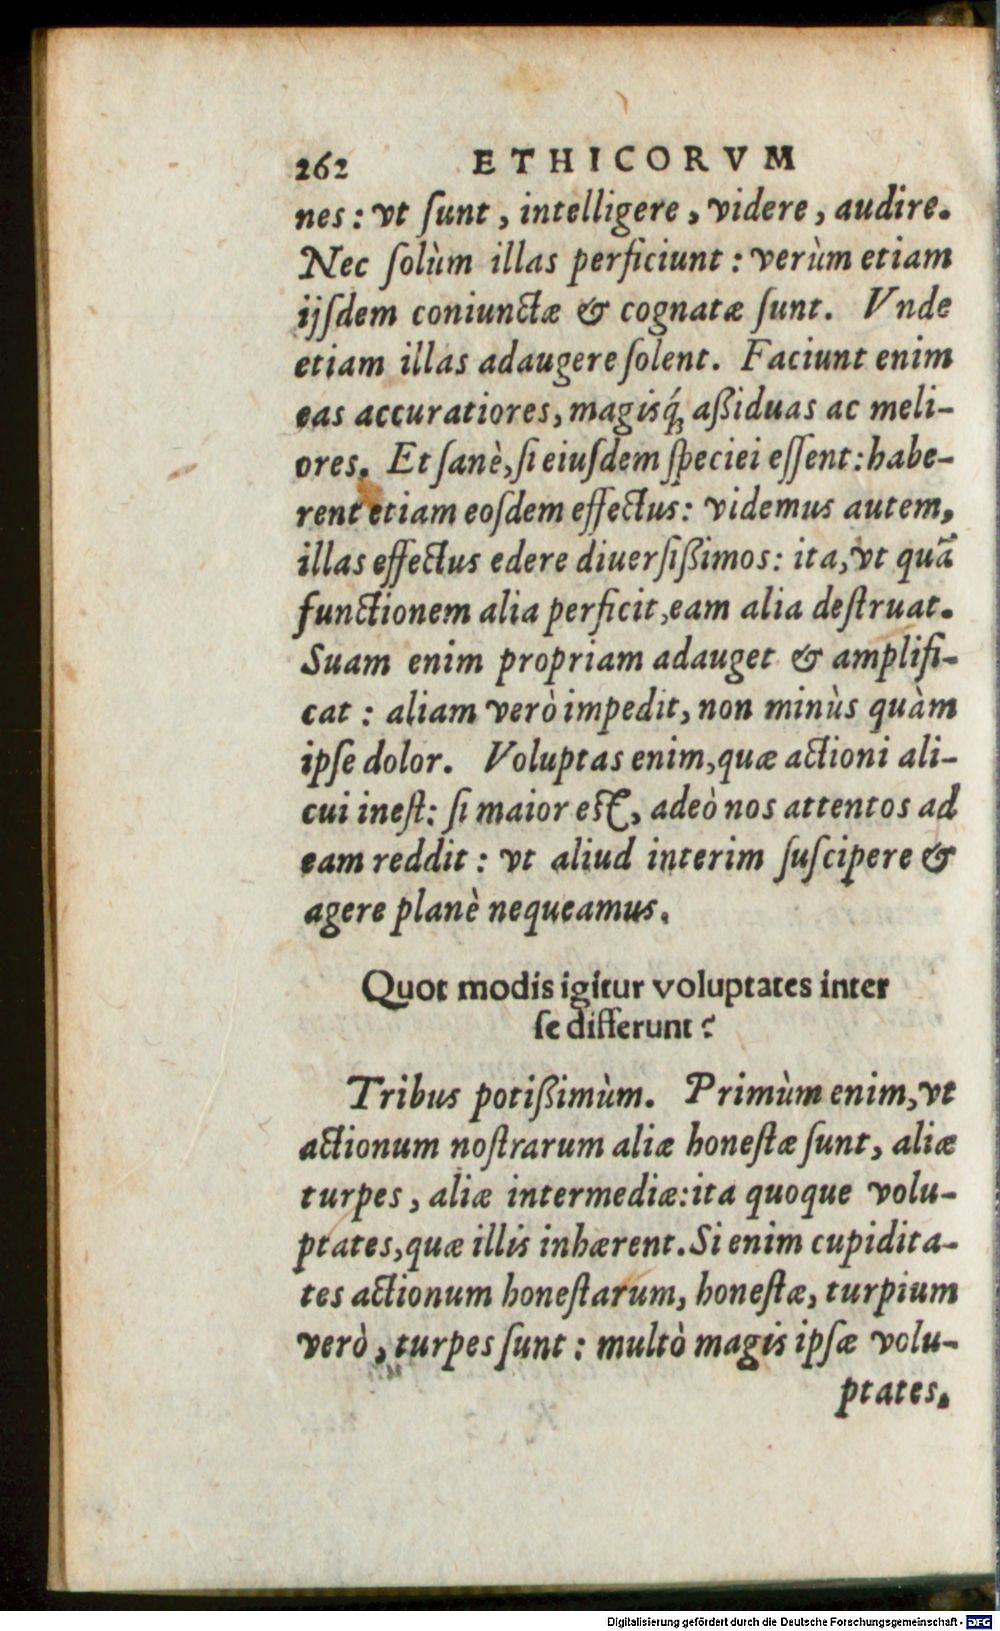 262 ETHICORVM
nes: vt ſunt, intelligere, videre, audire.
Nec ſolùm illas perficiunt: verùm etiam
ijſdem coniunctæ & cognatæ ſunt. Vnde
etiam illas adaugere ſolent. Faciunt enim
eas accuratiores, magisq́; aßiduas ac meli-
ores. Et ſanè, ſi eiuſdem ſpeciei eſſent: habe-
rent etiam eoſdem effectus: videmus autem,
illas effectus edere diuerſißimos: ita, vt quã
functionem alia perficit, eam alia deſtruat.
Suam enim propriam adauget & amplifi-
cat: aliam verò impedit, non minùs quàm
ipſe dolor. Voluptas enim, quæ actioni ali-
cui ineſt: ſi maior eſt, adeò nos attentos ad
eam reddit: vt aliud interim ſuſcipere &
agere planè nequeamus.
Quot modis igitur voluptates inter
ſe differunt?
Tribus potißimùm. Primùm enim, vt
actionum noſtrarum aliæ honeſtæ ſunt, aliæ
turpes, aliæ intermediæ: ita quoque volu-
ptates, quæ illis inhærent. Si enim cupidita-
tes actionum honeſtarum, honeſtæ, turpium
verò, turpes ſunt: multò magis ipſæ volu-
ptates.
Digitalisierung gefördert durch die Deutsche Forschungsgemeinschaft - DFG